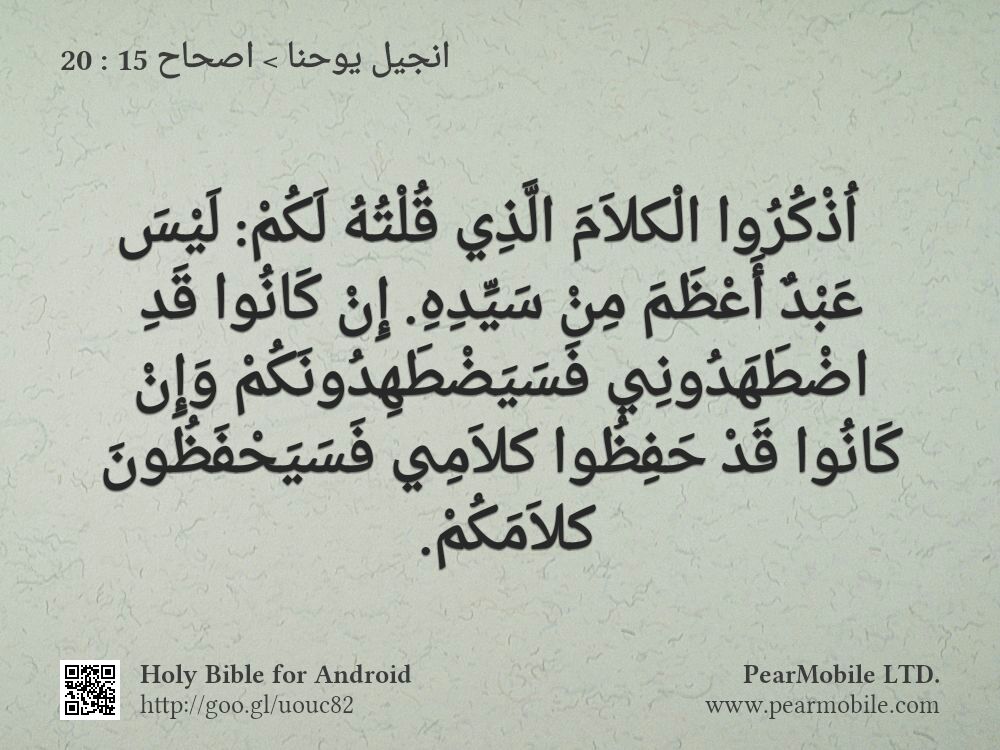 انجيل يوحنا > اصحاح 15 : 20
اُذْكُرُوا الْكلاَمَ الَّذِي قُلْتُهُ لَكُمْ: لَيْسَ
عَبْدٌ أَعْظَمَ مِنْ سَيِّدِهِ. إِنْ كَانُوا قَدِ
اضْطَهَدُونِي فَسَيَضْطَهِدُونَكُمْ وَإِنْ
كَانُوا قَدْ حَفِظُوا كلاَمِي فَسَيَحْفَظُونَ
كلاَمَكُمْ.
Holy Bible for Android
http://goo.gl/uouc82
PearMobile LTD.
www.pearmobile.com